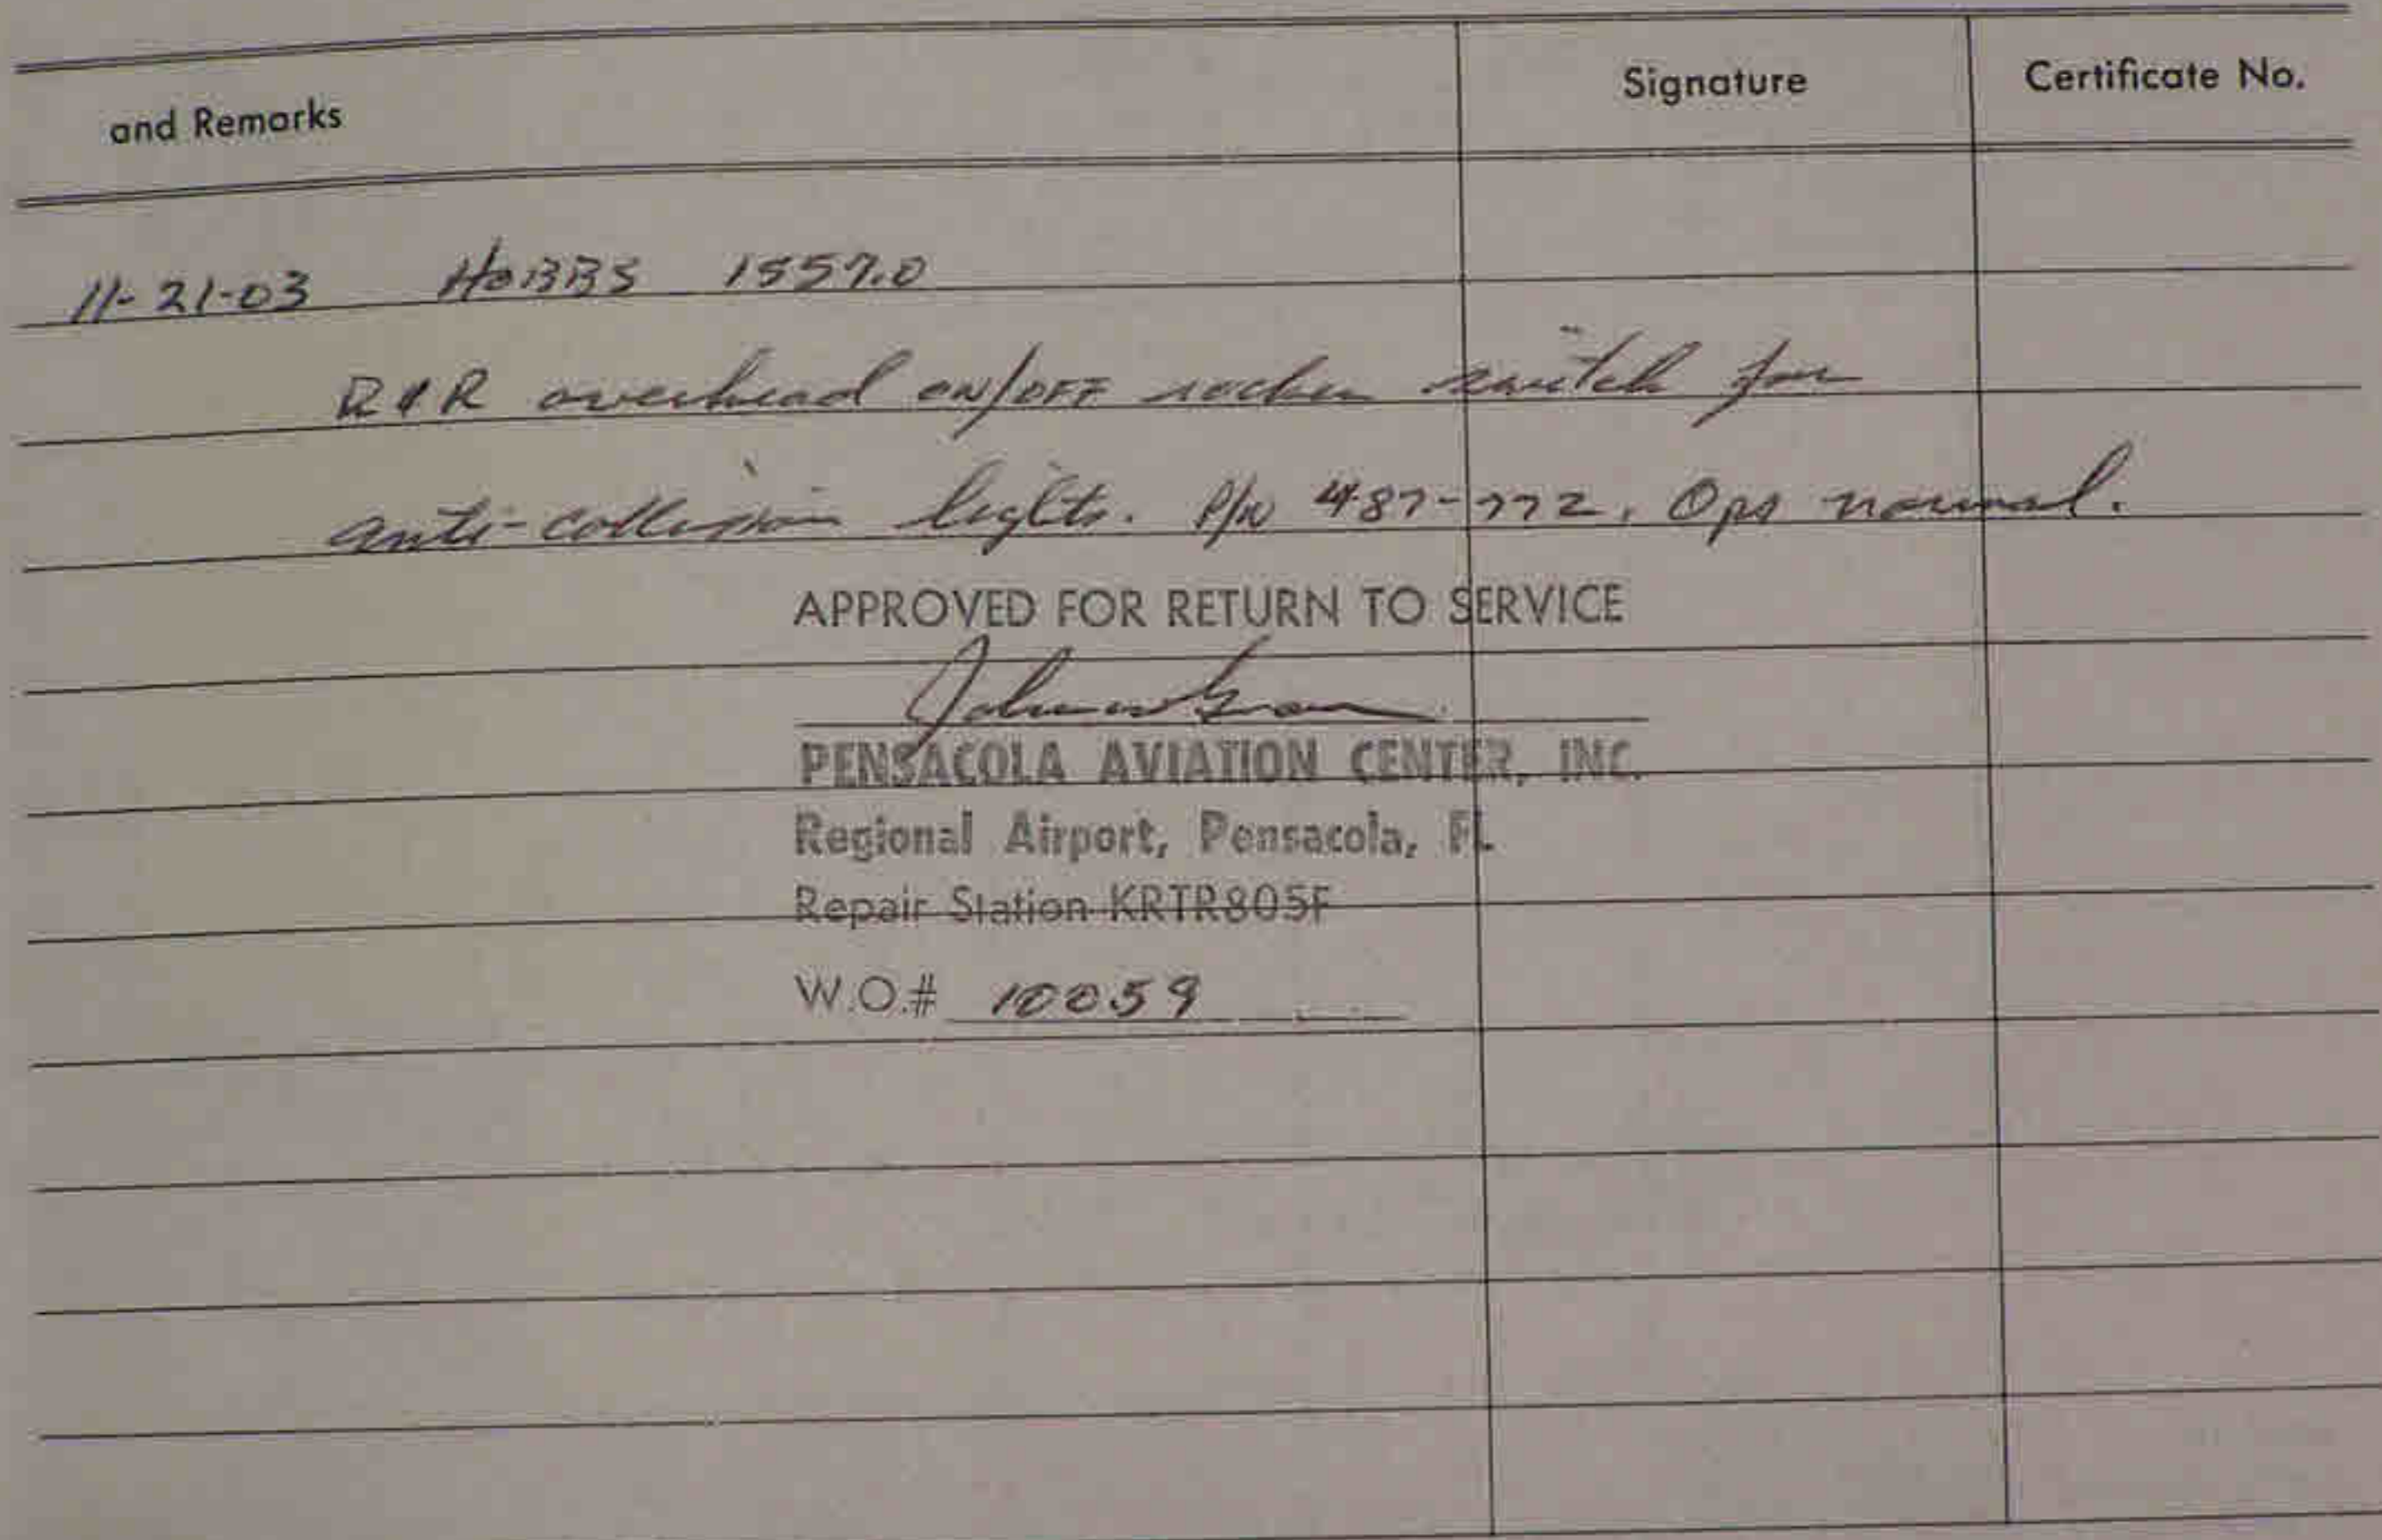 and Remarks Signature Certificate No.
11-21-03 HOBBS 1557.0
R&R overhead ON/OFF rocker switch for
anti-collision lights. P/N 487-772. Ops normal.
APPROVED FOR RETURN TO SERVICE
PENSACOLA AVIATION CENTER, INC.
Regional Airport, Pensacola, FL
Repair Station KRTR805F
W.O.# 10059